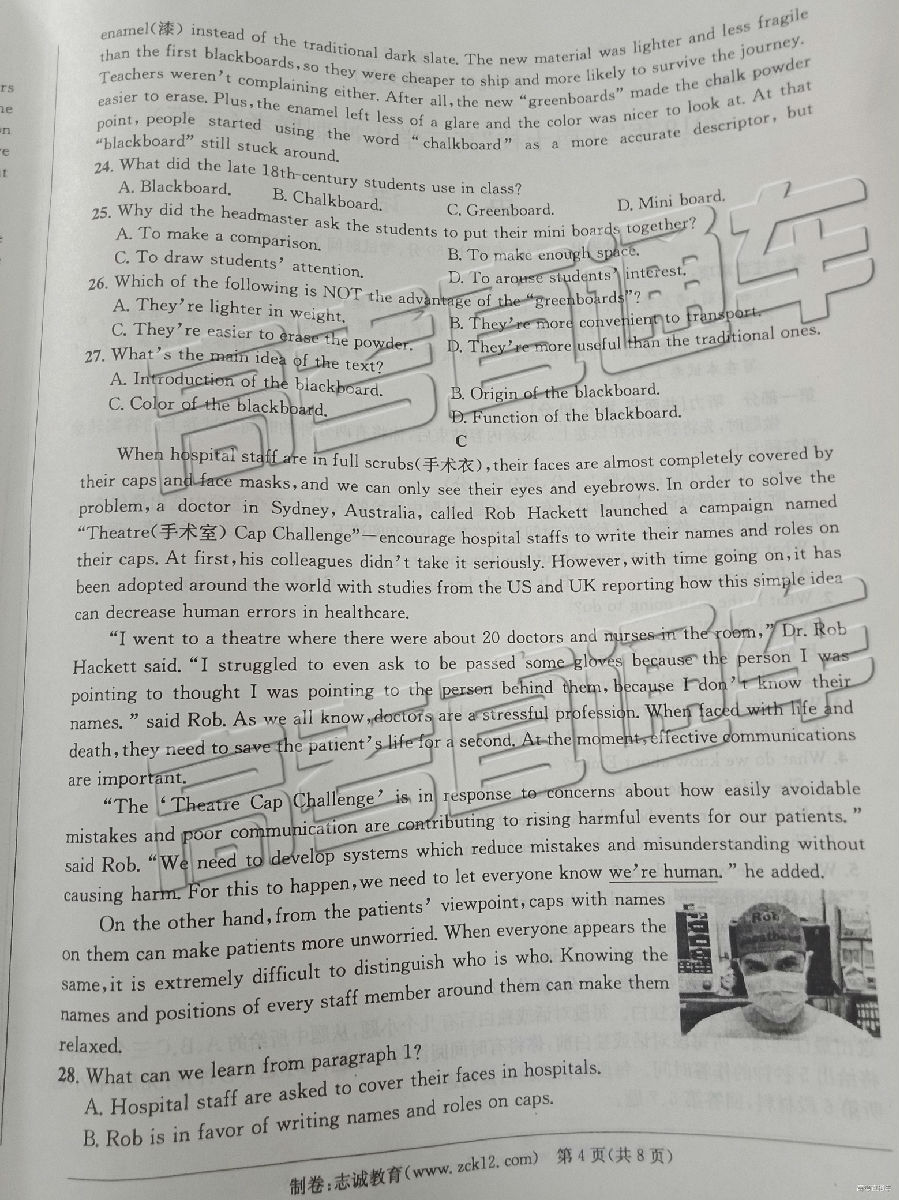 enamel(漆) instead of the traditional dark slate. The new material was lighter and less fragile
than the first blackboards, so they were cheaper to ship and more likely to survive the journey.
Teachers weren't complaining either. After all, the new “greenboards” made the chalk powder
easier to erase. Plus, the enamel left less of a glare and the color was nicer to look at. At that
point, people started using the word “chalkboard” as a more accurate descriptor, but
“blackboard” still stuck around.
24. What did the late 18th-century students use in class?
A. Blackboard. B. Chalkboard. C. Greenboard. D. Mini board.
25. Why did the headmaster ask the students to put their mini boards together?
A. To make a comparison. B. To make enough space.
C. To draw students' attention. D. To arouse students' interest.
26. Which of the following is NOT the advantage of the “greenboards”?
A. They're lighter in weight. B. They're more convenient to transport.
C. They're easier to erase the powder. D. They're more useful than the traditional ones.
27. What's the main idea of the text?
A. Introduction of the blackboard. B. Origin of the blackboard.
C. Color of the blackboard. D. Function of the blackboard.
C
When hospital staff are in full scrubs(手术衣), their faces are almost completely covered by
their caps and face masks, and we can only see their eyes and eyebrows. In order to solve the
problem, a doctor in Sydney, Australia, called Rob Hackett launched a campaign named
“Theatre(手术室) Cap Challenge”—encourage hospital staffs to write their names and roles on
their caps. At first, his colleagues didn't take it seriously. However, with time going on, it has
been adopted around the world with studies from the US and UK reporting how this simple idea
can decrease human errors in healthcare.
“I went to a theatre where there were about 20 doctors and nurses in the room,” Dr. Rob
Hackett said. “I struggled to even ask to be passed some gloves because the person I was
pointing to thought I was pointing to the person behind them, because I don't know their
names. ” said Rob. As we all know, doctors are a stressful profession. When faced with life and
death, they need to save the patient's life for a second. At the moment, effective communications
are important.
“The ‘Theatre Cap Challenge’ is in response to concerns about how easily avoidable
mistakes and poor communication are contributing to rising harmful events for our patients. ”
said Rob. “We need to develop systems which reduce mistakes and misunderstanding without
causing harm. For this to happen, we need to let everyone know we're human. ” he added.
On the other hand, from the patients' viewpoint, caps with names
on them can make patients more unworried. When everyone appears the
same, it is extremely difficult to distinguish who is who. Knowing the
names and positions of every staff member around them can make them
relaxed.
Rob
28. What can we learn from paragraph 1?
A. Hospital staff are asked to cover their faces in hospitals.
B. Rob is in favor of writing names and roles on caps.
制卷:志诚教育(www. zck12. com) 第 4 页(共 8 页)
高考直通车
高考直通车